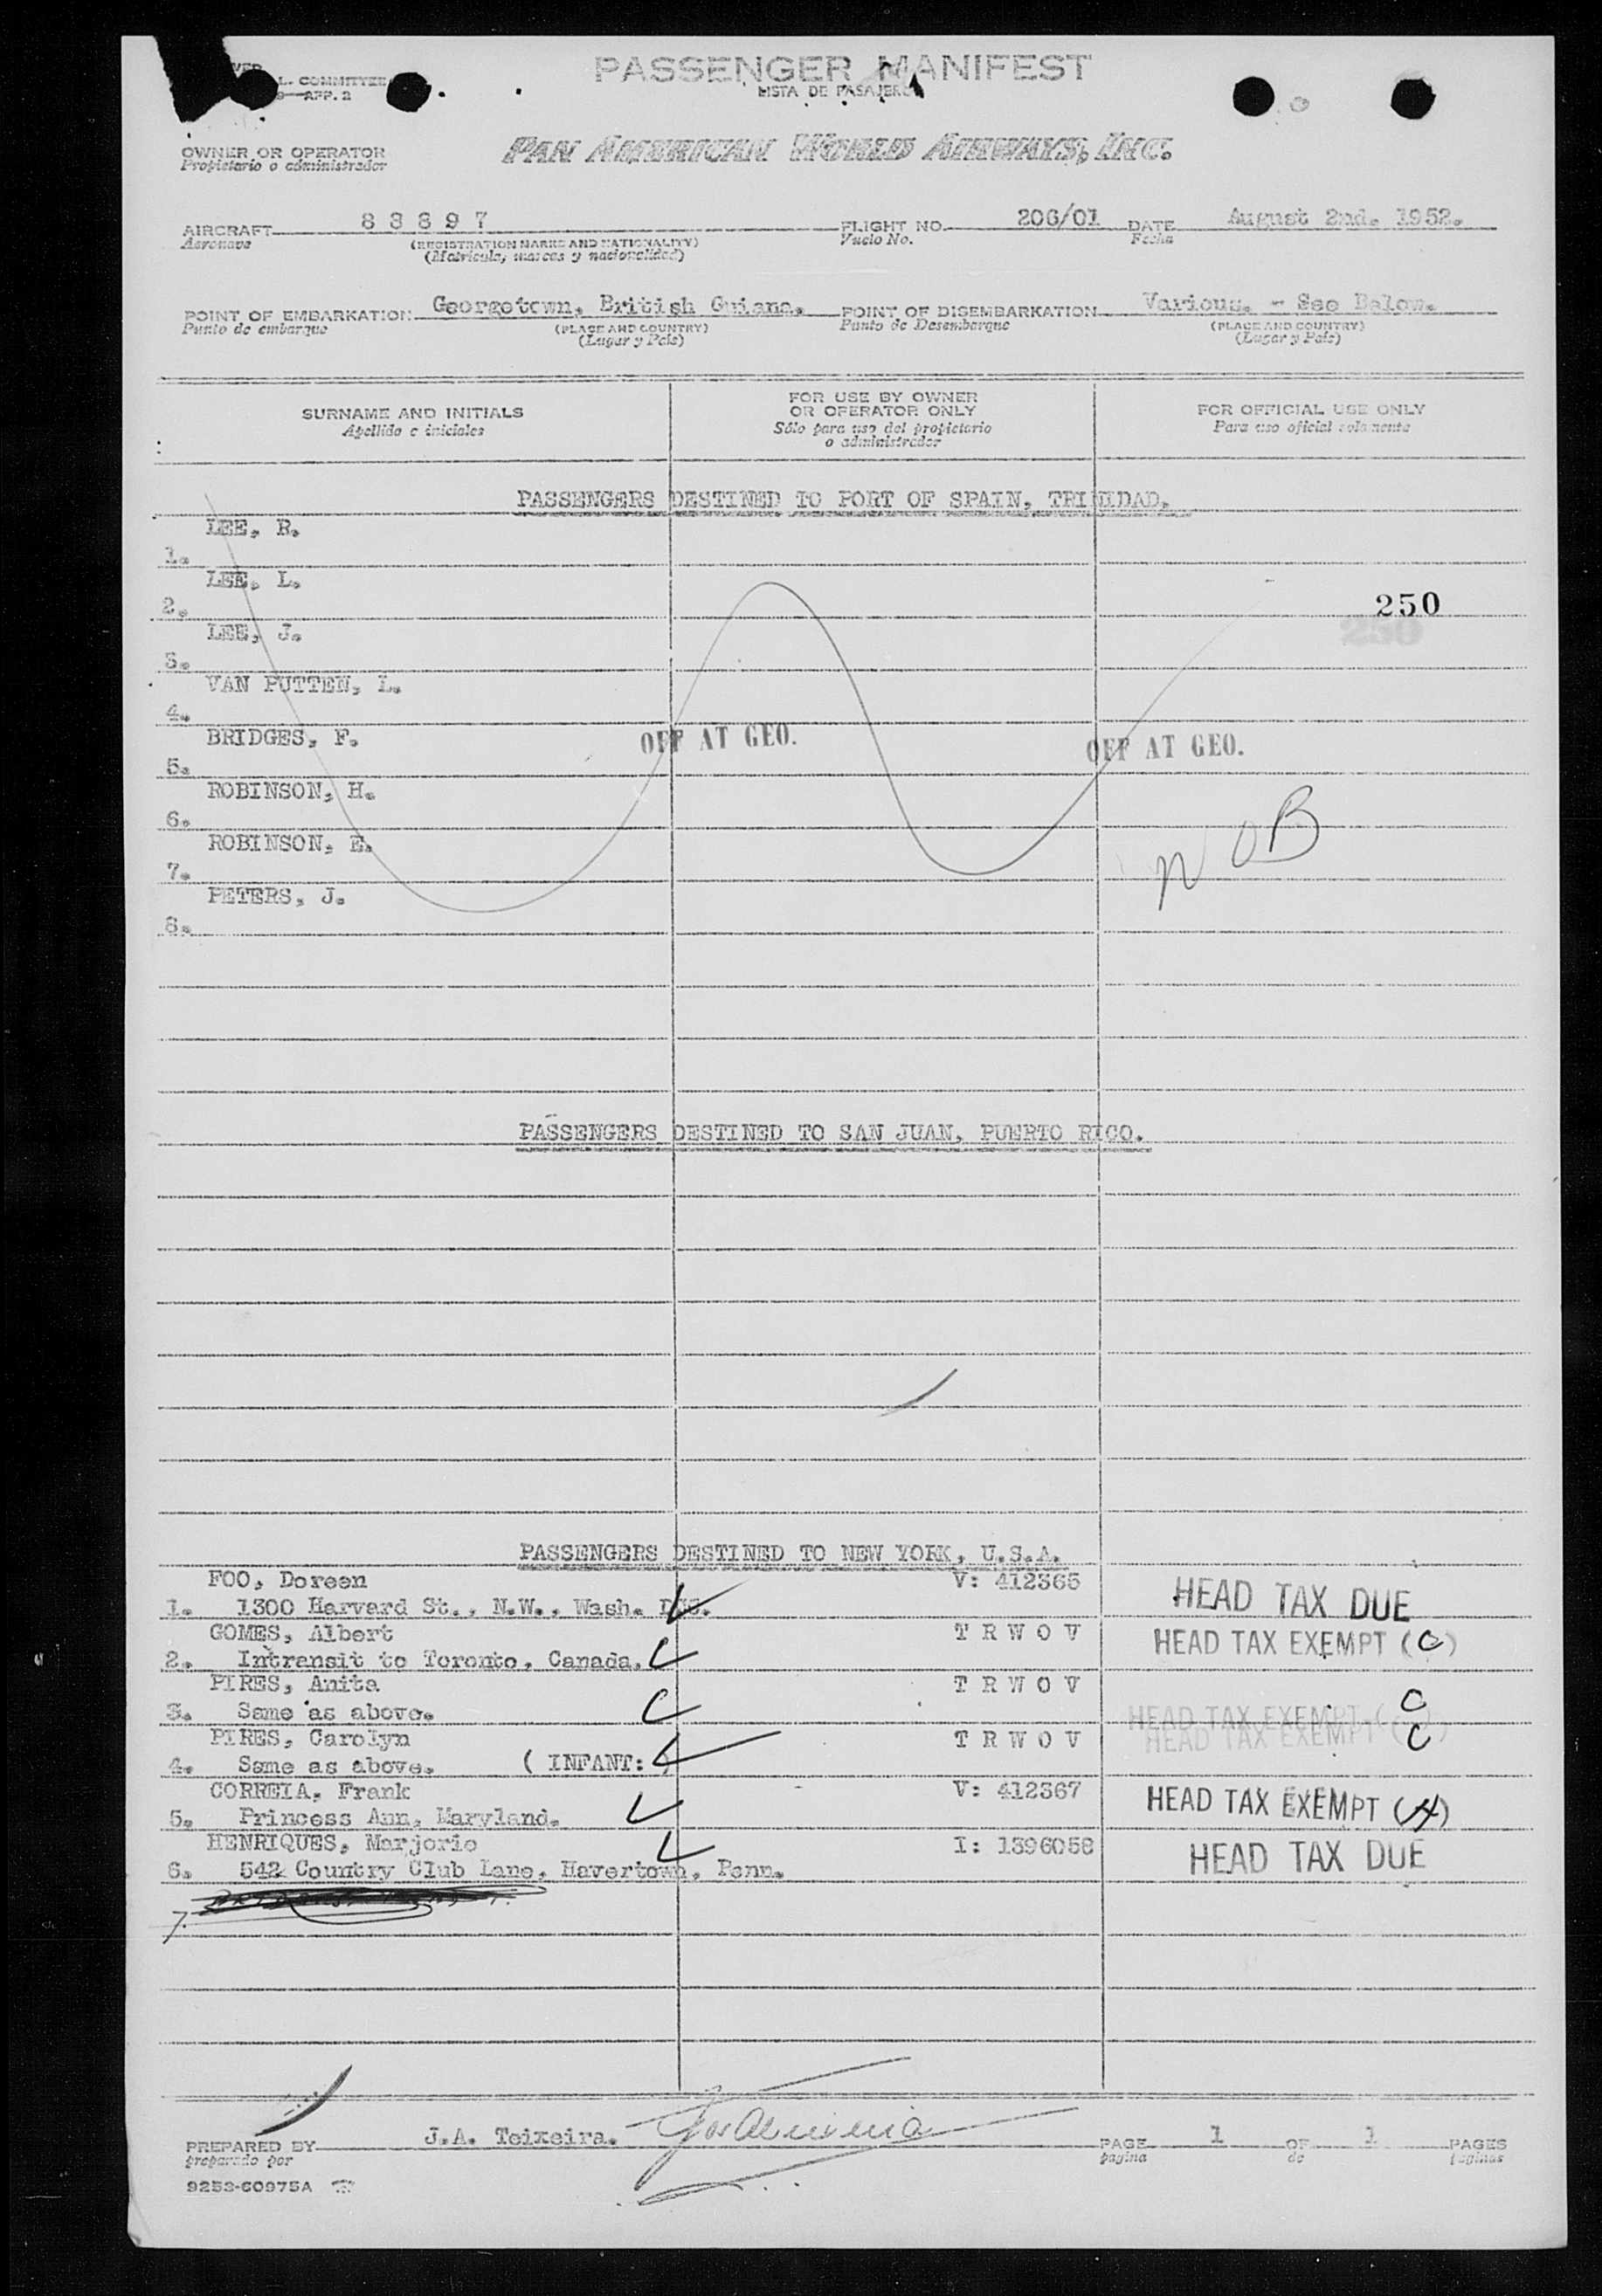 L. COMMITTEE
APP. 2
PASSENGER MANIFEST
LISTA DE PASAJEROS
OWNER OR OPERATOR
Propietario o administrador
PAN AMERICAN WORLD AIRWAYS, INC.
AIRCRAFT 8 8 8 9 7 FLIGHT NO. 206/01 DATE August 2nd. 1952.
Aeronave (REGISTRATION MARKS AND NATIONALITY) Vuelo No. Fecha
(Matricula, marcas y nacionalidad)
POINT OF EMBARKATION Georgetown, British Guiana. POINT OF DISEMBARKATION Various. - See Below.
Punto de embarque (PLACE AND COUNTRY) Punto de Desembarque (PLACE AND COUNTRY)
(Lugar y País) (Lugar y País)
SURNAME AND INITIALS
Apellido e iniciales
FOR USE BY OWNER
OR OPERATOR ONLY
Sólo para uso del propietario
o administrador
FOR OFFICIAL USE ONLY
Para uso oficial solamente
PASSENGERS DESTINED TO PORT OF SPAIN, TRINIDAD.
LEE, R.
1.
LEE, L.
2. 250
LEE, J. 250
3.
VAN PUTTEN, L.
4.
BRIDGES, F. OFF AT GEO. OFF AT GEO.
5.
ROBINSON, H.
6.
ROBINSON, E. N O B
7.
PETERS, J.
8.
PASSENGERS DESTINED TO SAN JUAN, PUERTO RICO.
PASSENGERS DESTINED TO NEW YORK, U.S.A.
FOO, Doreen V: 412365
1. 1300 Harvard St., N.W., Wash. D.C. HEAD TAX DUE
GOMES, Albert T R W O V HEAD TAX EXEMPT (C)
2. Intransit to Toronto, Canada.
PIRES, Anita T R W O V
3. Same as above. HEAD TAX EXEMPT (C)
PIRES, Carolyn T R W O V HEAD TAX EXEMPT (C)
4. Same as above. ( INFANT: )
CORREIA, Frank V: 412367 HEAD TAX EXEMPT (H)
5. Princess Ann, Maryland.
HENRIQUES, Marjorie I: 1396058 HEAD TAX DUE
6. 542 Country Club Lane, Havertown, Penn.
7.
PREPARED BY J.A. Teixeira. PAGE 1 OF 1 PAGES
preparado por página de páginas
9253-60975A